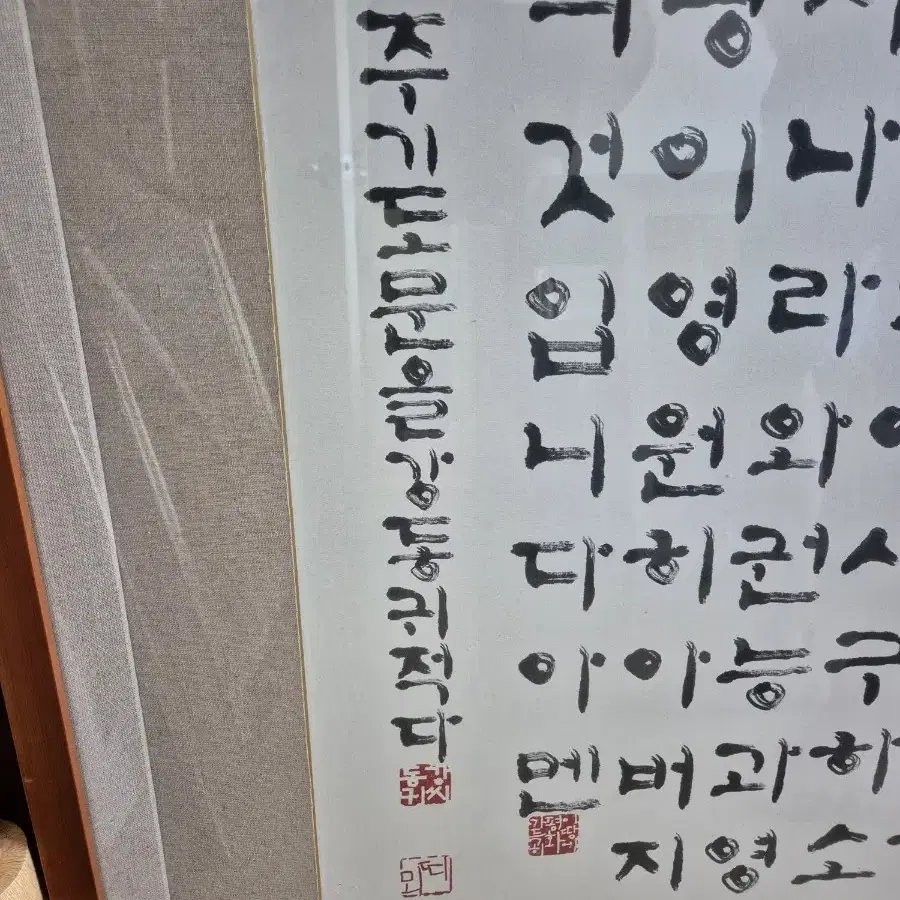 구하소
나라와권능과영
광이영원히아버지
것입니다아멘
주기도문을강동귀적다